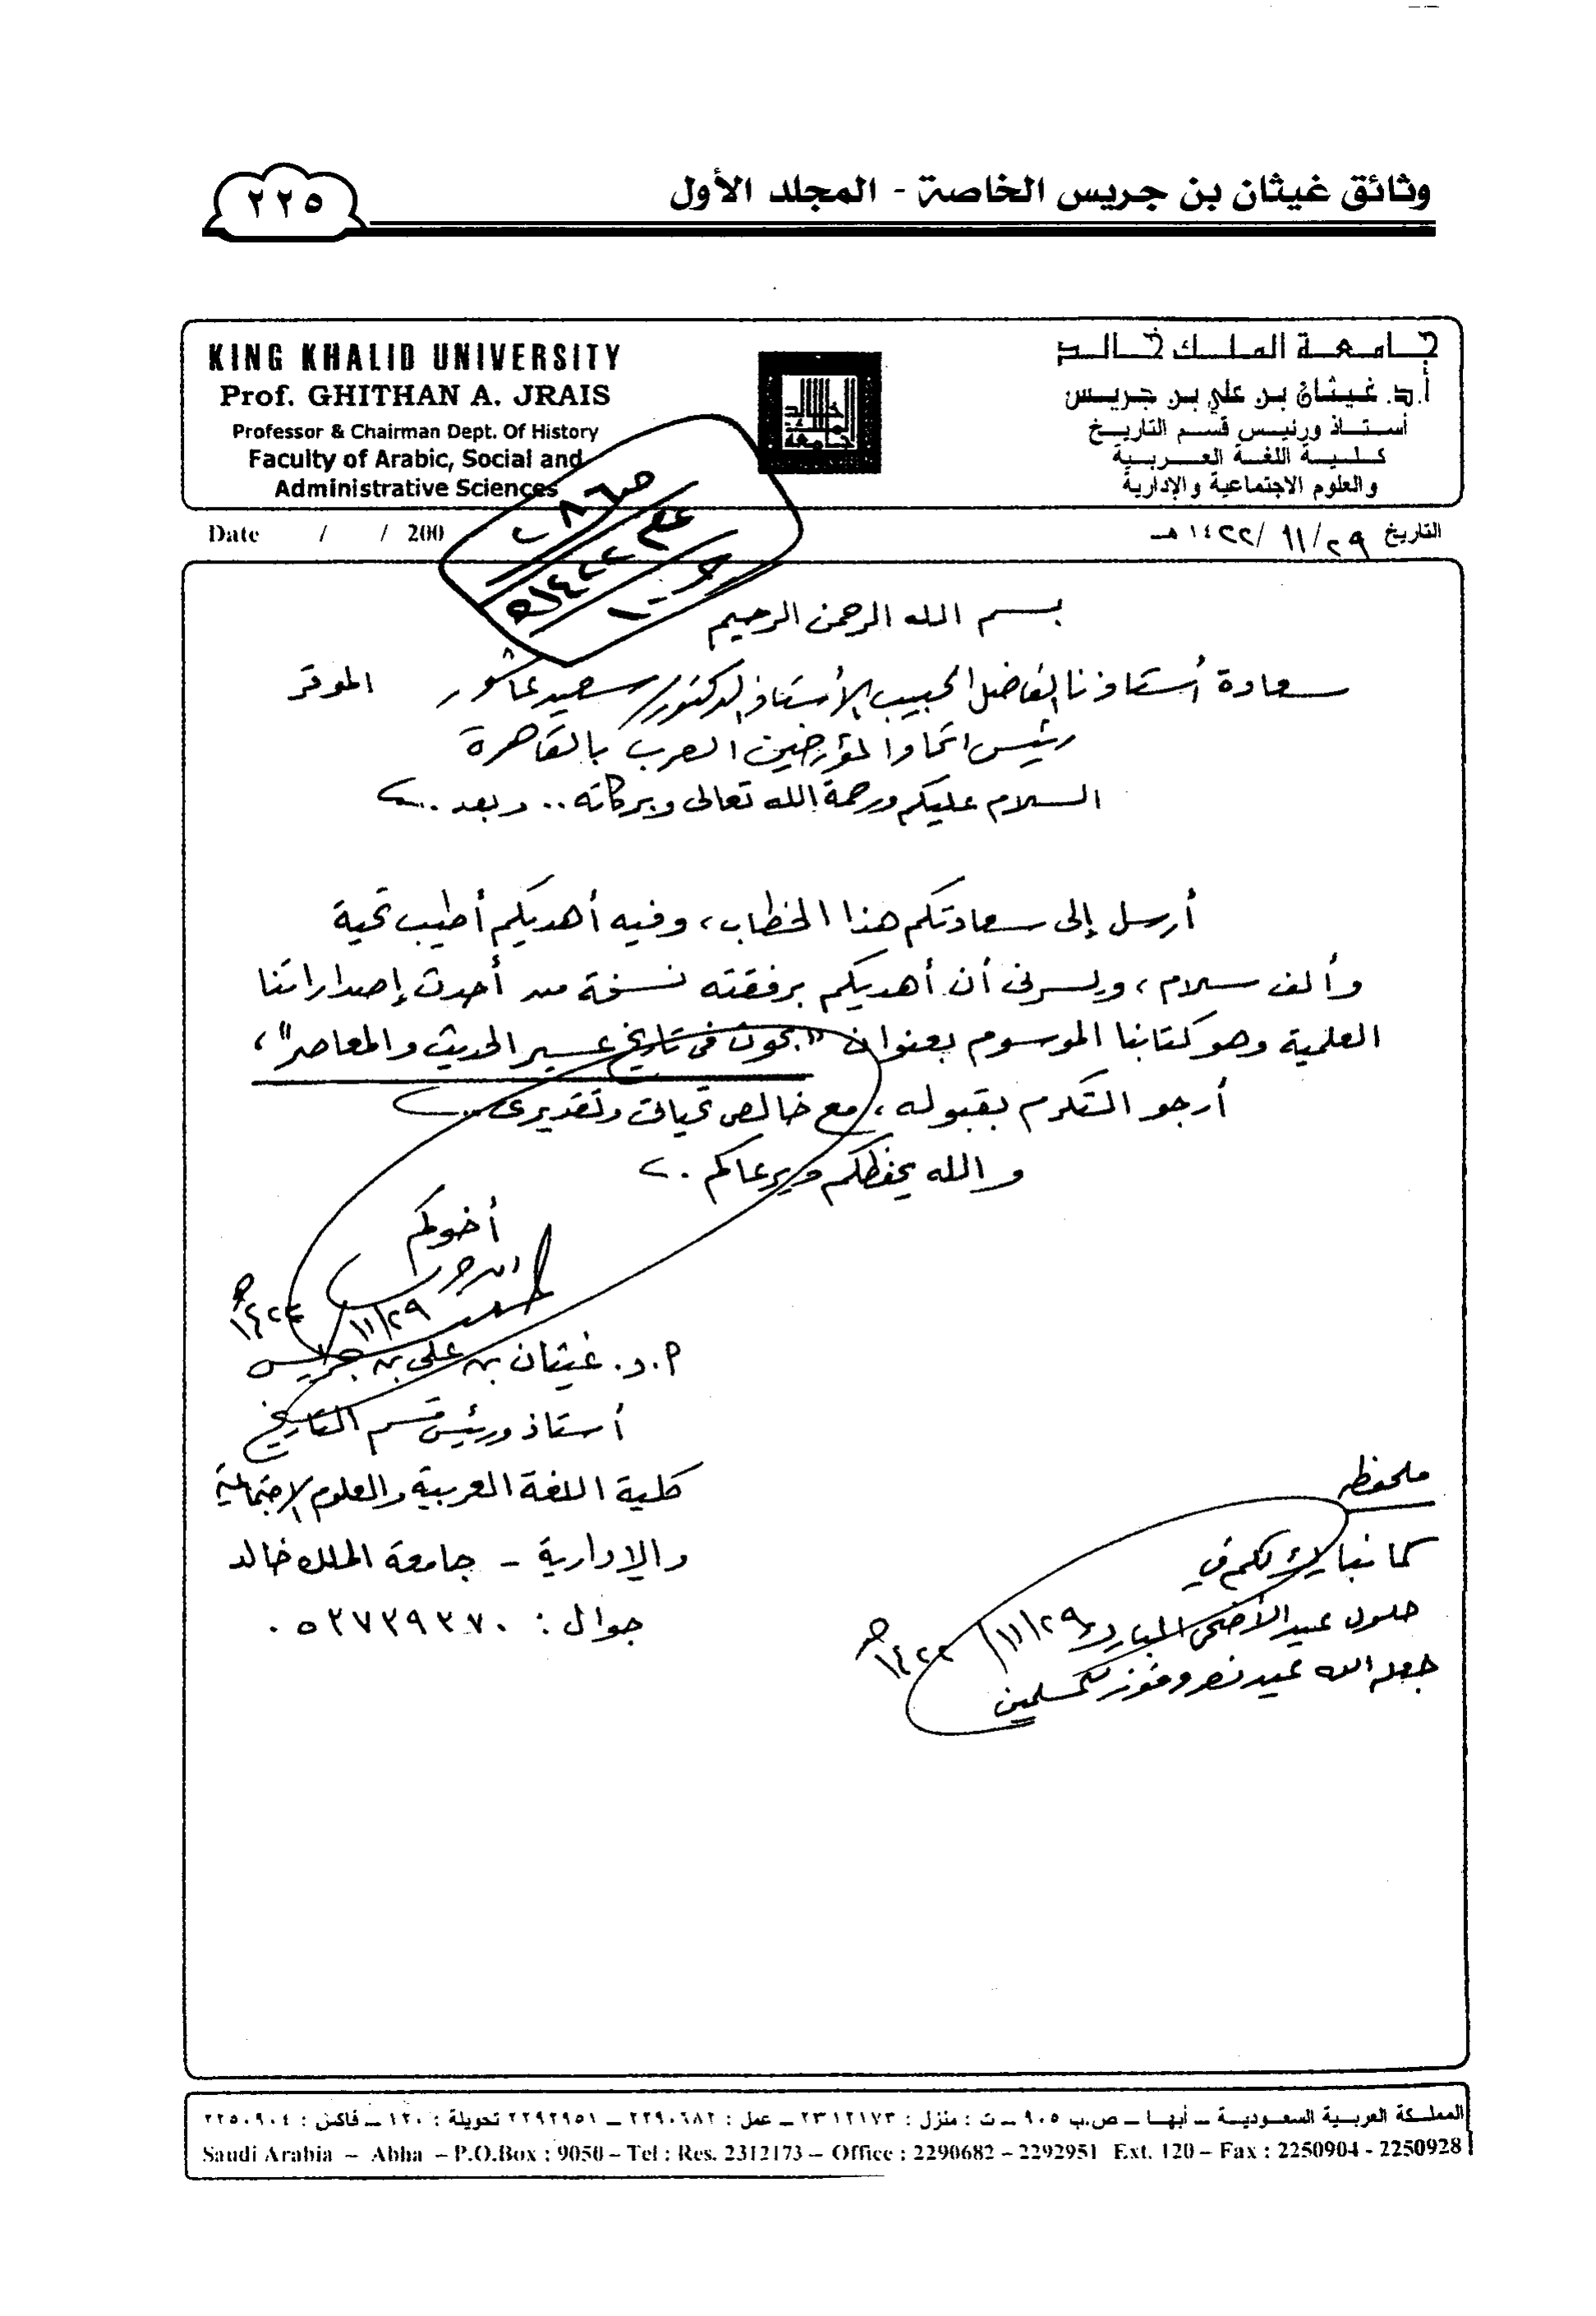 وثائق غيثان بن جريس الخاصة - المجلد الأول
٢٢٥
KING KHALID UNIVERSITY
Prof. GHITHAN A. JRAIS
Professor & Chairman Dept. Of History
Faculty of Arabic, Social and
Administrative Sciences
جامعة الملك خالد
أ.د. غيثان بن علي بن جريس
أستاذ ورئيس قسم التاريخ
كلية اللغة العربية
والعلوم الاجتماعية والإدارية
Date / / 200
التاريخ ٢٩/ ١١/ ١٤٢٢ هـ
بسم الله الرحمن الرحيم
سعادة أستاذنا الفاضل الحبيب الأستاذ الدكتور/ سعيد عاشور الموقر
رئيس اتحاد المؤرخين العرب بالقاهرة
السلام عليكم ورحمة الله تعالى وبركاته .. وبعد ..
أرسل إلى سعادتكم هذا الخطاب، وفيه أهديكم أطيب تحية
وألف سلام، ويسرني أن أهديكم برفقته نسخة من أحدث إصداراتنا
العلمية وهو كتابنا الموسوم بعنوان "بحوث في تاريخ عسير الحديث والمعاصر"،
أرجو التكرم بقبوله، مع خالص تحياتي وتقديري
والله يحفظكم ويرعاكم .
أخوكم
٢٩/١١/١٤٢٢هـ
أ.د. غيثان بن علي بن جريس
أستاذ ورئيس قسم التاريخ
كلية اللغة العربية والعلوم الاجتماعية
والإدارية - جامعة الملك خالد
جوال : ٠٥٢٧٢٩٢٧٠
ملحوظة
كما نبارك لكم في
حلول عيد الأضحى المبارك
جعله الله عيد نصر وفوز للمسلمين
٢٩/١١/١٤٢٢هـ
المملكة العربية السعودية – أبها – ص.ب ٩٠٥ – ت : منزل : ٢٣١٢١٧٣ – عمل : ٢٢٩٠٦٨٢ – ٢٢٩٢٩٥١ تحويلة : ١٢٠ – فاكس : ٢٢٥٠٩٠٤
Saudi Arabia – Abha – P.O.Box : 9050 – Tel : Res. 2312173 – Office : 2290682 – 2292951 Ext. 120 – Fax : 2250904 - 2250928